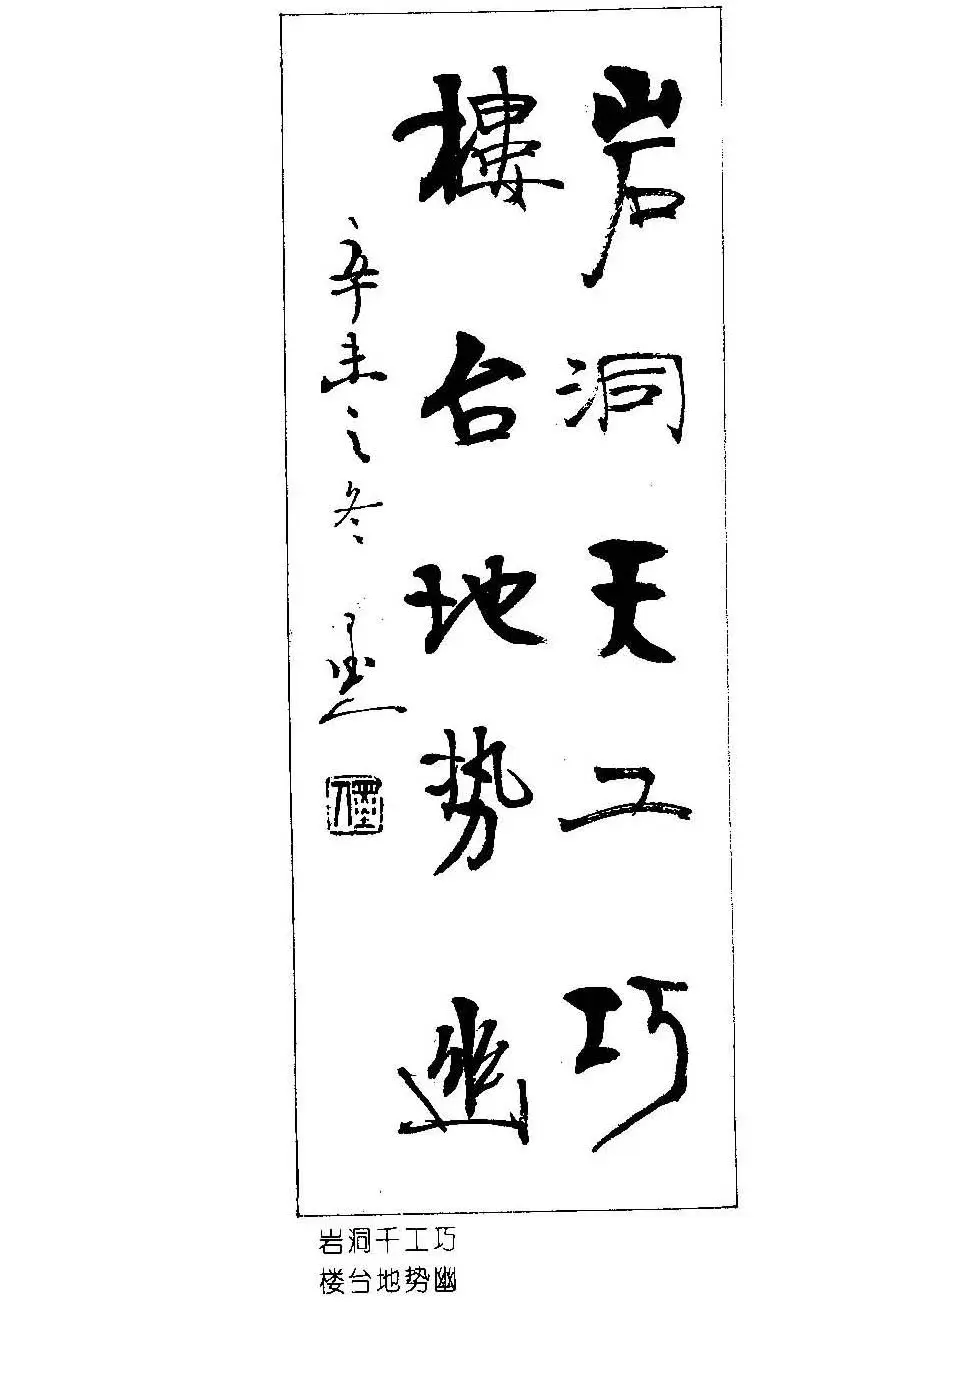 岩洞天工巧
樓台地势幽
辛未之冬 墨
岩洞千工巧
楼台地势幽